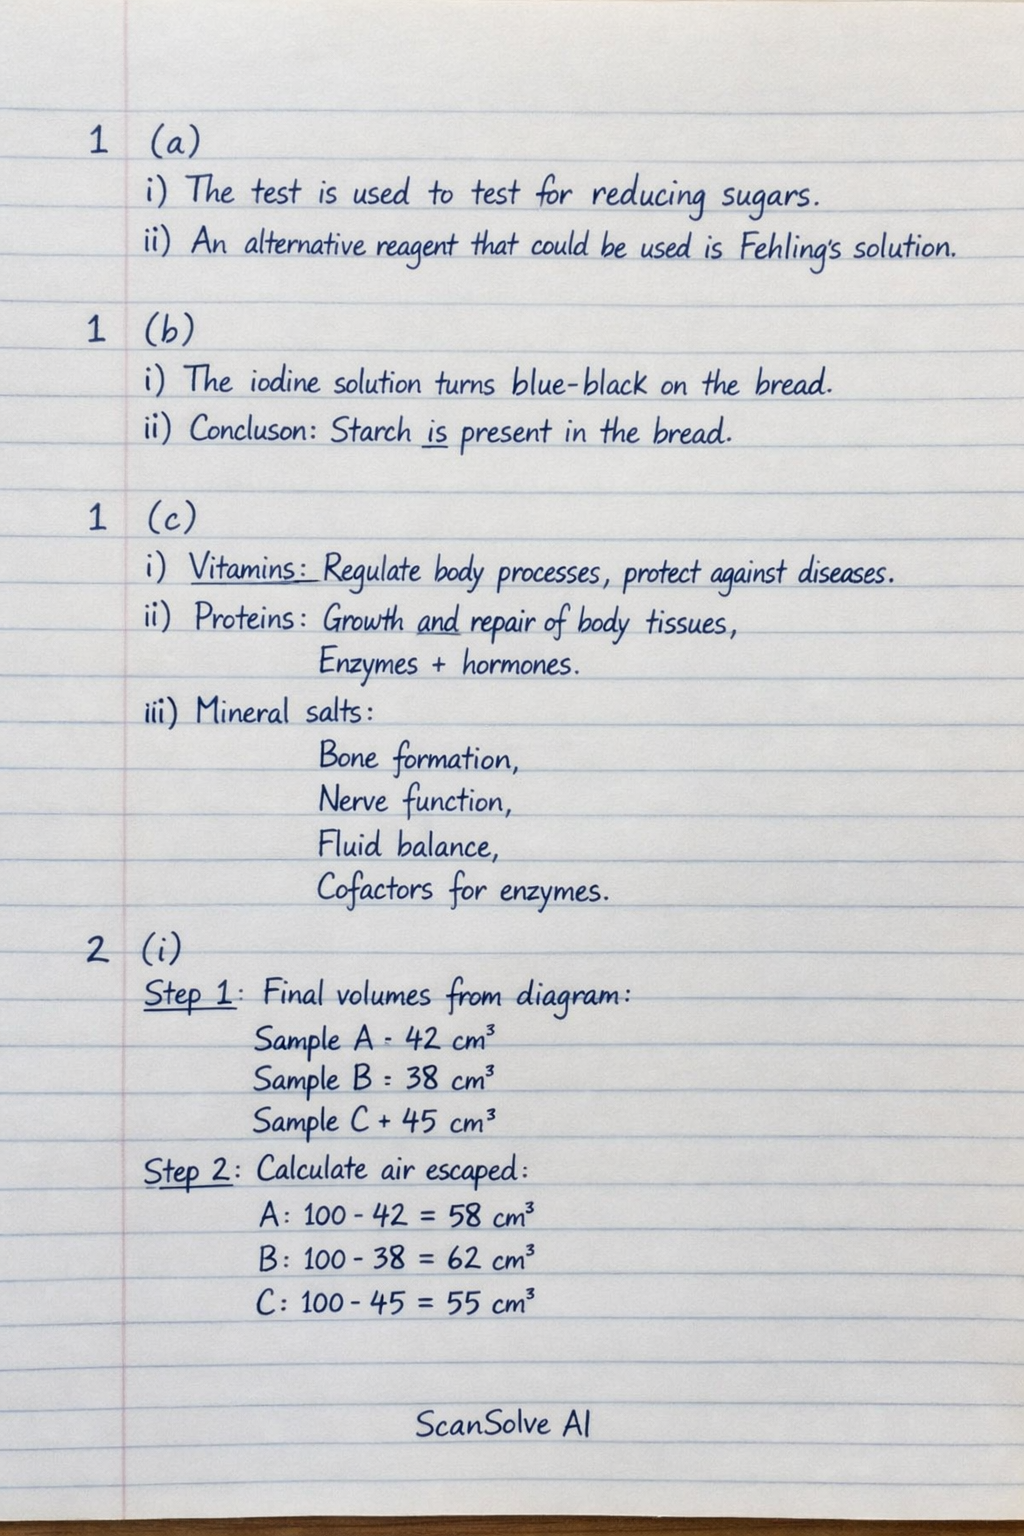 1 (a)
i) The test is used to test for reducing sugars.
ii) An alternative reagent that could be used is Fehling's solution.
1 (b)
i) The iodine solution turns blue-black on the bread.
ii) Concluson: Starch is present in the bread.
1 (c)
i) Vitamins: Regulate body processes, protect against diseases.
ii) Proteins: Growth and repair of body tissues,
Enzymes + hormones.
iii) Mineral salts:
Bone formation,
Nerve function,
Fluid balance,
Cofactors for enzymes.
2 (i)
Step 1: Final volumes from diagram:
Sample A - 42 cm³
Sample B : 38 cm³
Sample C + 45 cm³
Step 2: Calculate air escaped:
A: 100 - 42 = 58 cm³
B: 100 - 38 = 62 cm³
C: 100 - 45 = 55 cm³
ScanSolve AI